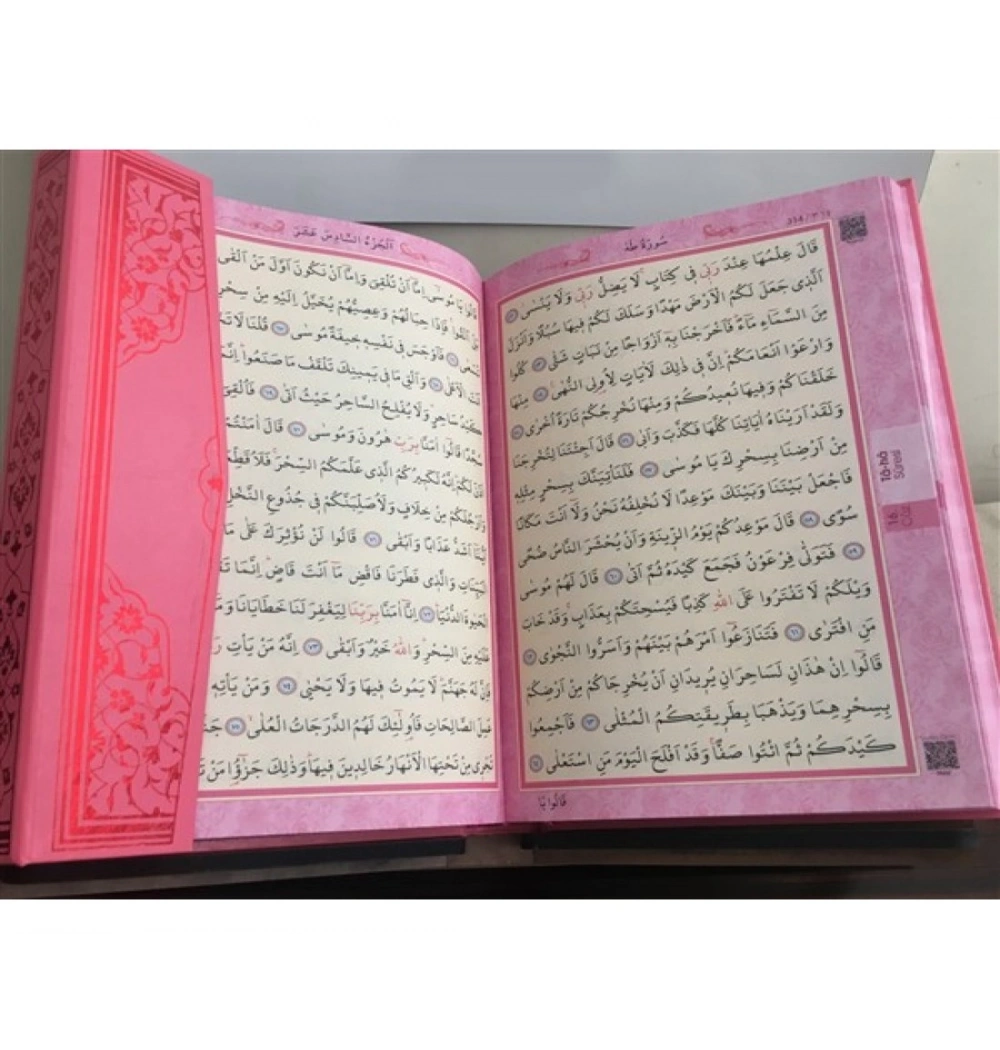 سُورَةُ طٰهٰ
٣١٤ / 314
قَالَ عِلْمُهَا عِنْدَ رَبّ۪ي ف۪ي كِتَابٍ لَا يَضِلُّ رَبّ۪ي وَلَا يَنْسٰى ٥٢
اَلَّذ۪ي جَعَلَ لَكُمُ الْاَرْضَ مَهْدًا وَسَلَكَ لَكُمْ ف۪يهَا سُبُلًا وَاَنْزَلَ
مِنَ السَّمَاءِ مَاءً فَاَخْرَجْنَا بِه۪ اَزْوَاجًا مِنْ نَبَاتٍ شَتّٰى ٥٣ كُلُوا
وَارْعَوْا اَنْعَامَكُمْ اِنَّ ف۪ي ذٰلِكَ لَاٰيَاتٍ لِاُو۬لِي النُّهٰى ٥٤ مِنْهَا
خَلَقْنَاكُمْ وَف۪يهَا نُع۪يدُكُمْ وَمِنْهَا نُخْرِجُكُمْ تَارَةً اُخْرٰى ٥٥
وَلَقَدْ اَرَيْنَاهُ اٰيَاتِنَا كُلَّهَا فَكَذَّبَ وَاَبٰى ٥٦ قَالَ اَجِئْتَنَا لِتُخْرِجَنَا
مِنْ اَرْضِنَا بِسِحْرِكَ يَا مُوسٰى ٥٧ فَلَنَأْتِيَنَّكَ بِسِحْرٍ مِثْلِه۪
فَاجْعَلْ بَيْنَنَا وَبَيْنَكَ مَوْعِدًا لَا نُخْلِفُهُ نَحْنُ وَلَا اَنْتَ مَكَانًا
سُوًى ٥٨ قَالَ مَوْعِدُكُمْ يَوْمُ الزّ۪ينَةِ وَاَنْ يُحْشَرَ النَّاسُ ضُحًى
٥٩ فَتَوَلّٰى فِرْعَوْنُ فَجَمَعَ كَيْدَهُ ثُمَّ اَتٰى ٦٠ قَالَ لَهُمْ مُوسٰى
وَيْلَكُمْ لَا تَفْتَرُوا عَلَى اللّٰهِ كَذِبًا فَيُسْحِتَكُمْ بِعَذَابٍ وَقَدْ خَابَ
مَنِ افْتَرٰى ٦١ فَتَنَازَعُوا اَمْرَهُمْ بَيْنَهُمْ وَاَسَرُّوا النَّجْوٰى ٦٢
قَالُوا اِنْ هٰذَانِ لَسَاحِرَانِ يُر۪يدَانِ اَنْ يُخْرِجَاكُمْ مِنْ اَرْضِكُمْ
بِسِحْرِهِمَا وَيَذْهَبَا بِطَر۪يقَتِكُمُ الْمُثْلٰى ٦٣ فَاَجْمِعُوا
كَيْدَكُمْ ثُمَّ ائْتُوا صَفًّا وَقَدْ اَفْلَحَ الْيَوْمَ مَنِ اسْتَعْلٰى ٦٤
قَالُوا يَا
Tâ-hâ
Sûresi
16.
Cüz
اَلْجُزْءُ السَّادِسَ عَشَرَ
قَالُوا يَا مُوسٰى اِمَّا اَنْ تُلْقِيَ وَاِمَّا اَنْ نَكُونَ اَوَّلَ مَنْ اَلْقٰى
بَلْ اَلْقُوا فَاِذَا حِبَالُهُمْ وَعِصِيُّهُمْ يُخَيَّلُ اِلَيْهِ مِنْ سِحْرِ
تَسْعٰى ٦٦ فَاَوْجَسَ ف۪ي نَفْسِه۪ خ۪يفَةً مُوسٰى ٦٧ قُلْنَا لَا تَخَ
اَنْتَ الْاَعْلٰى ٦٨ وَاَلْقِ مَا ف۪ي يَم۪ينِكَ تَلْقَفْ مَا صَنَعُوا اِنَّمَ
كَيْدُ سَاحِرٍ وَلَا يُفْلِحُ السَّاحِرُ حَيْثُ اَتٰى ٦٩ فَاُلْقِيَ
سُجَّدًا قَالُوا اٰمَنَّا بِرَبِّ هٰرُونَ وَمُوسٰى ٧٠ قَالَ اٰمَنْتُمْ
اٰذَنَ لَكُمْ اِنَّهُ لَكَب۪يرُكُمُ الَّذ۪ي عَلَّمَكُمُ السِّحْرَ فَلَاُقَطِّعَ
وَاَرْجُلَكُمْ مِنْ خِلَافٍ وَلَاُصَلِّبَنَّكُمْ ف۪ي جُذُوعِ النَّخْلِ
اَيُّنَا اَشَدُّ عَذَابًا وَاَبْقٰى ٧١ قَالُوا لَنْ نُؤْثِرَكَ عَلٰى مَا
الْبَيِّنَاتِ وَالَّذ۪ي فَطَرَنَا فَاقْضِ مَا اَنْتَ قَاضٍ اِنَّمَا تَقْ
الْحَيٰوةَ الدُّنْيَا ٧٢ اِنَّا اٰمَنَّا بِرَبِّنَا لِيَغْفِرَ لَنَا خَطَايَانَا وَمَ
عَلَيْهِ مِنَ السِّحْرِ وَاللّٰهُ خَيْرٌ وَاَبْقٰى ٧٣ اِنَّهُ مَنْ يَأْتِ رَ
فَاِنَّ لَهُ جَهَنَّمَ لَا يَمُوتُ ف۪يهَا وَلَا يَحْيٰى ٧٤ وَمَنْ يَأْتِه۪
عَمِلَ الصَّالِحَاتِ فَاُو۬لٰئِكَ لَهُمُ الدَّرَجَاتُ الْعُلٰى ٧٥ جَنَّ
تَجْر۪ي مِنْ تَحْتِهَا الْاَنْهَارُ خَالِد۪ينَ ف۪يهَا وَذٰلِكَ جَزٰٓؤُ۬ا مَنْ تَ